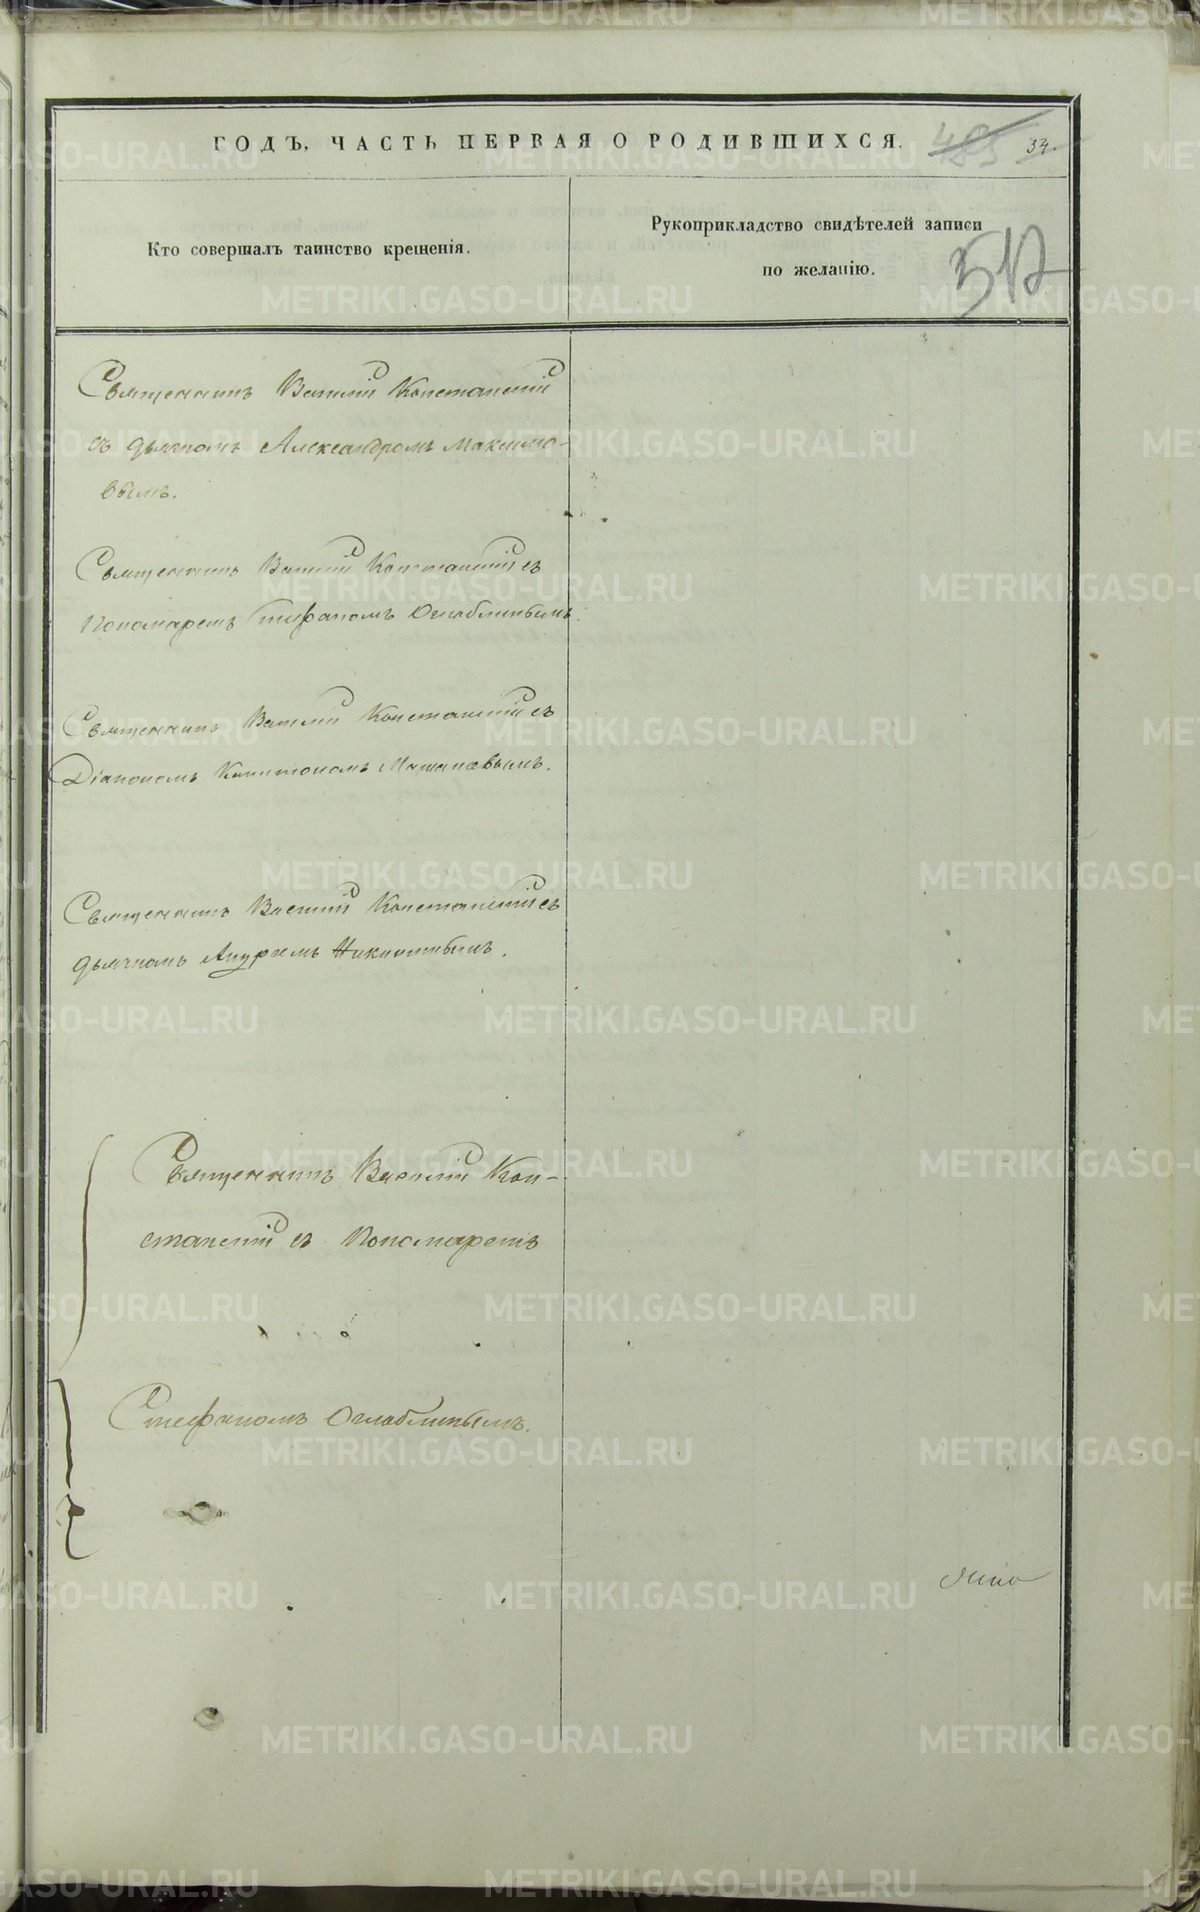 ГОДЪ. ЧАСТЬ ПЕРВАЯ О РОДИВШИХСЯ.
485 34.
Кто совершалъ таинство крещенія.
Рукоприкладство свидѣтелей записи
по желанію.
512
Священникъ Василій Констансній
съ дьячкомъ Александромъ Максимо-
вымъ.
Священникъ Василій Констансній съ
Пономаремъ Стефаномъ Оглоблинымъ.
Священникъ Василій Констансній съ
Діакономъ Капитономъ
Священникъ Василій Констансній съ
дьячкомъ
Священникъ Василій Кон-
стансній съ Пономаремъ
Стефаномъ Оглоблинымъ.
METRIKI.GASO-URAL.RU